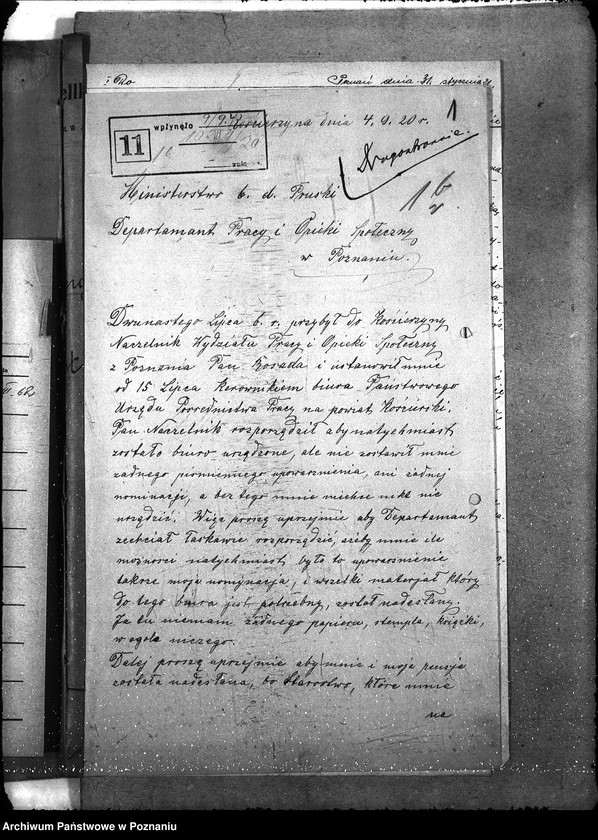 Poznań dnia 31. stycznia 21.
wpłynęło
11
Kościerzyna dnia 4.9.20 r.
1
Ministerstwo b. d. Pruski
Departamant Pracy i Opieki Społeczny
w Poznaniu.
Dwunastego Lipca b. r. przybył do Kościerzyny
Naczelnik Wydziału Pracy i Opieki Społeczny
z Poznania Pan Rosada i ustanowił mnie
od 15 Lipca kerownikiem biura Państwowego
Urzędu Porednistwa Pracy na powiat Kościerski.
Pan Naczelnik rozporządził aby natychmiast
zostało biuro urządzone, ale nie zostawił mni
żadnego piśmiennego upoważnienia, ani żadnej
nominacji, a bez tego mnie nie
urządzić. Więc proszę uprzejmie aby Departamant
zechciał łaskawie rozporządzić, żeby mnie ile
możności natychmiast było to upoważnienie
także moja nominacja, i wszelki materjał który
do tego biura jest potrzebny, został nadesłany.
Ja tu niemam żadnego papieru, stempla, książki,
w ogóle niczego.
Dalej proszę uprzejmie aby mnie i moja pensja
została nadesłana, bo Starostwo, które mnie
na
Archiwum Państwowe w Poznaniu